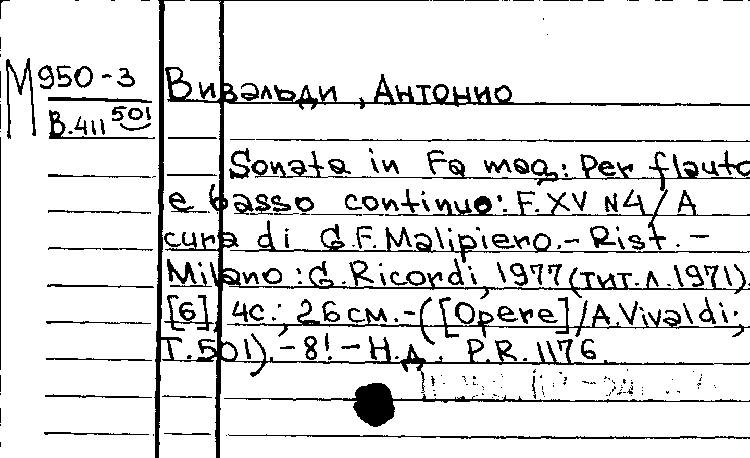 М950-3
В.411 501
Вивальди, Антонио
Sonata in Fa mag: Per flauto
e basso continuo: F.XV N4/A
cura di G.F.Malipiero.- Rist.-
Milano: G.Ricordi, 1977(тит.л.1971).
[6], 4с.; 26см.-([Opere]/A.Vivaldi;
Т.501).-8!-Н.д. P.R.1176.